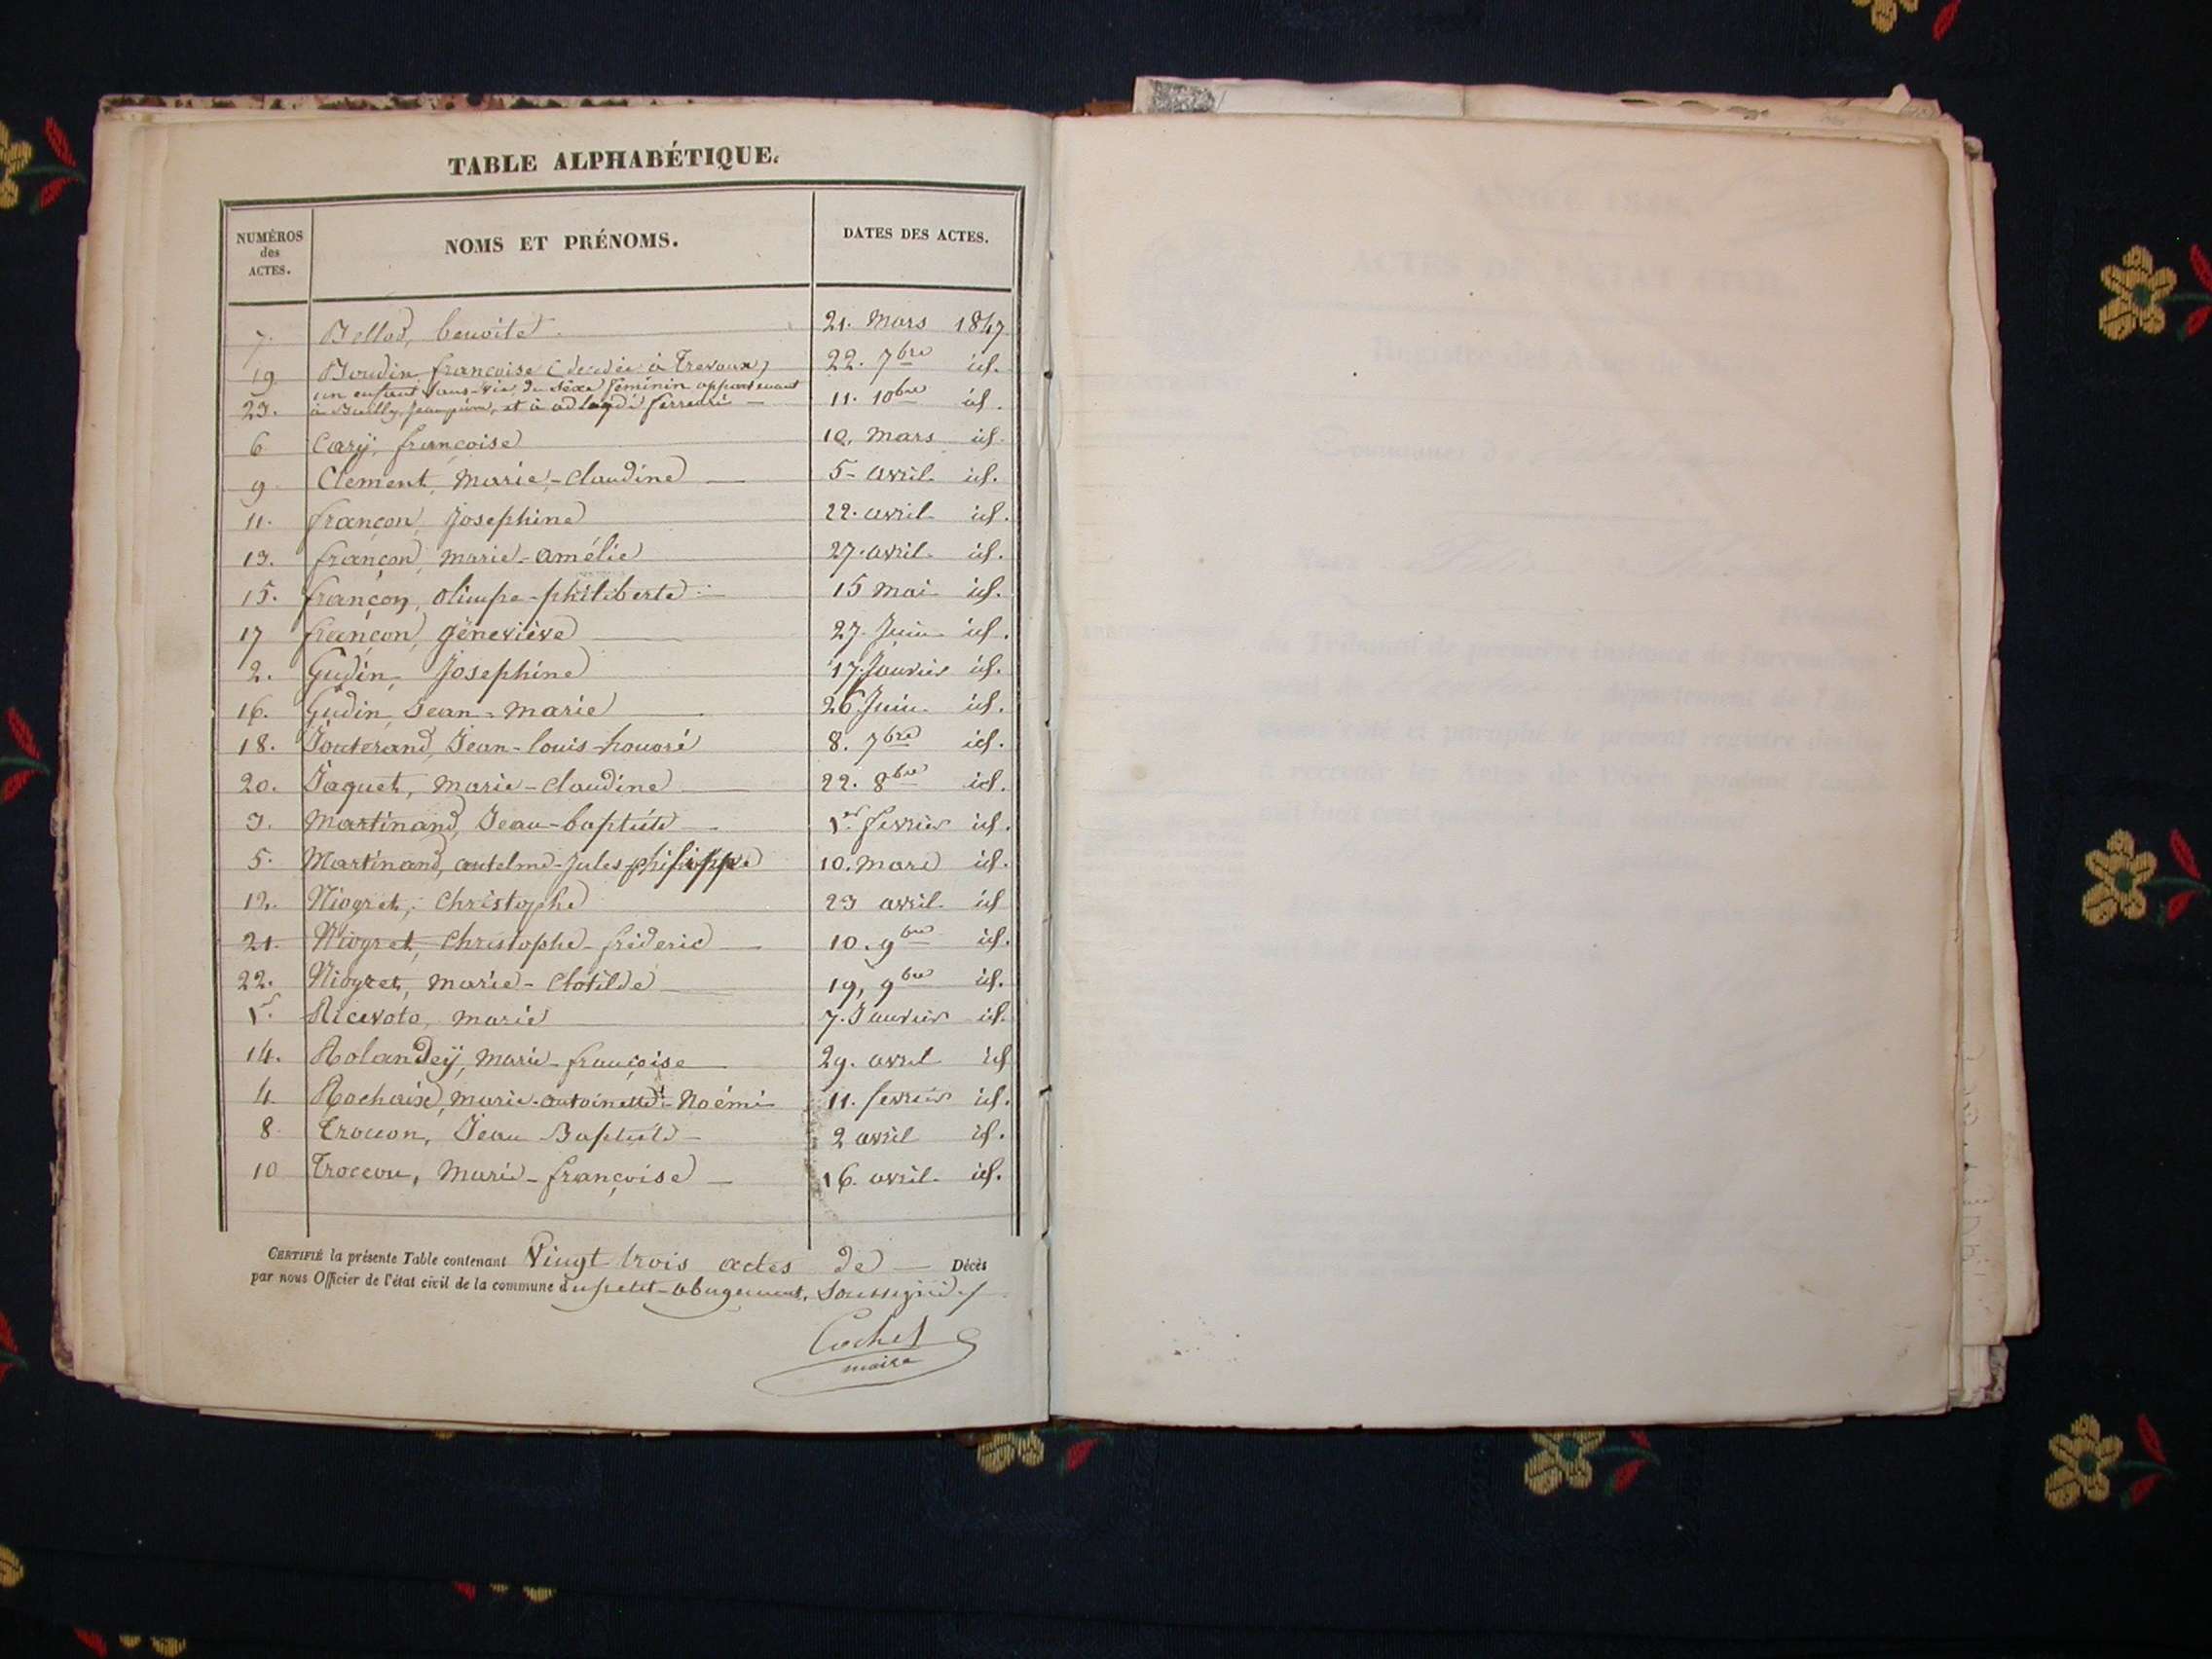 TABLE ALPHABÉTIQUE.
NUMÉROS des ACTES. NOMS ET PRÉNOMS. DATES DES ACTES.
7. benoite 21. Mars 1847
19 Boudin françoise (décédée à Trevoux) 22. 7bre id.
un enfant sans-vie du séxe féminin appartenant
23. à et à 11. 10bre id.
6 Cary, françoise 10, Mars id.
9. Clement, Marie-Claudine 5- avril id.
11. françon, Josephine 22. avril id.
13. françon, Marie-Amélie 27. avril id.
15. françon, Olimpe-philiberte 15 Mai id.
17 françon, Géneviève 27. Juin id.
2. Gudin, Josephine 17. Janvier id.
16. Gudin, Jean-Marie 26 Juin id.
18. Jouterand, Jean-louis-honoré 8. 7bre id.
20. Jaquet, Marie-Claudine 22. 8bre id.
3. Martinand, Jean-baptiste 1er fevrier id.
5. Martinand, antelme-Jules-philippe 10. Mars id.
12. Niogret, Christophe 23 avril id
21. Niogret, Christophe-fréderic 10. 9bre id.
22. Niogret, Marie-Clotilde 19, 9bre id.
1er. Marie 7. Janvier id.
14. Rolandey, Marie-françoise 29. avril id
4. Rochaix, Marie-antoinette-Noémi 11. fevrier id.
8. Troccon, Jean Baptiste 2 avril id.
10 Troccon, Marie-françoise 16. avril id.
CERTIFIÉ la présente Table contenant Vingt trois actes de Décès
par nous Officier de l'état civil de la commune du petit-abergement, Soussigné
Cochet
maire